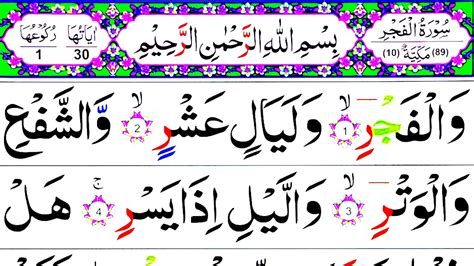 سُوْرَةُ الْفَجْرِ
(89) مَكِّيَّةٌ (10)
بِسْمِ اللهِ الرَّحْمٰنِ الرَّحِيْمِ
اٰيَاتُهَا 30
رُكُوْعُهَا 1
وَالْفَجْرِ ۙ 1 وَلَيَالٍ عَشْرٍ ۙ 2 وَّالشَّفْعِ
وَالْوَتْرِ ۙ 3 وَالَّيْلِ اِذَا يَسْرِ ۚ 4 هَلْ